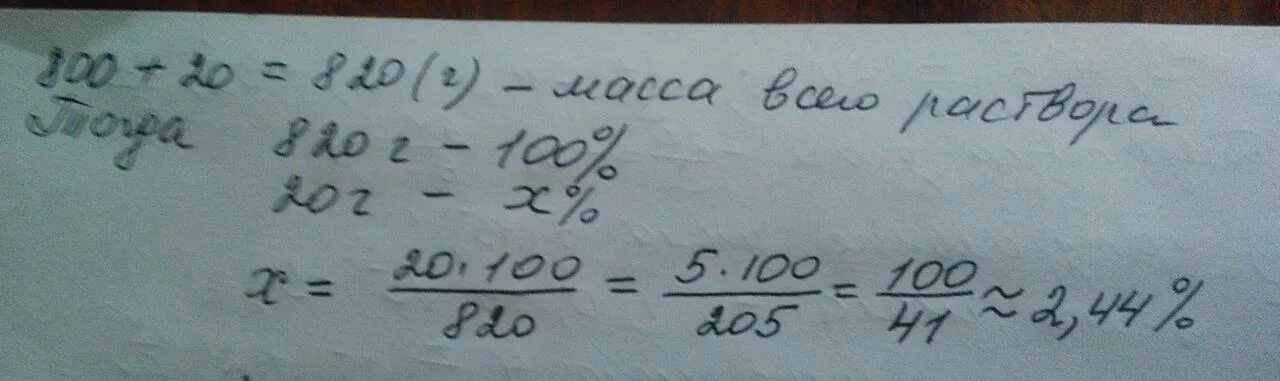 800 + 20 = 820 (г) – масса всего раствора
Тогда 820 г – 100%
20 г – x%
x = 20·100/820 = 5·100/205 = 100/41 ≈ 2,44%